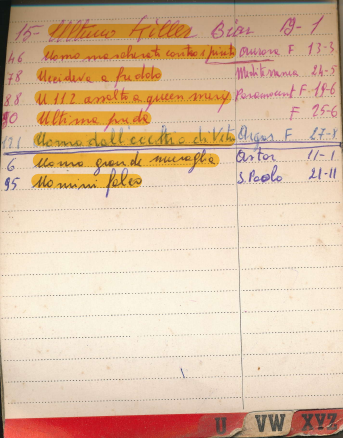 15- Ultimo Killer Bear 19-1
46 Uomo mascherato contro i pirati Aurora F 13-3
78 Uccideva a freddo Mediterraneo 24-5
88 U 112 assalto a queen mary Paramount F 19-6
90 Ultima preda F 25-6
121 Uomo dall'occhio di Vetro Argos F 27-8
6 Uomo grande muraglia Astor 11-1
95 Uomini falco S. Paolo 21-11
U VW XYZ